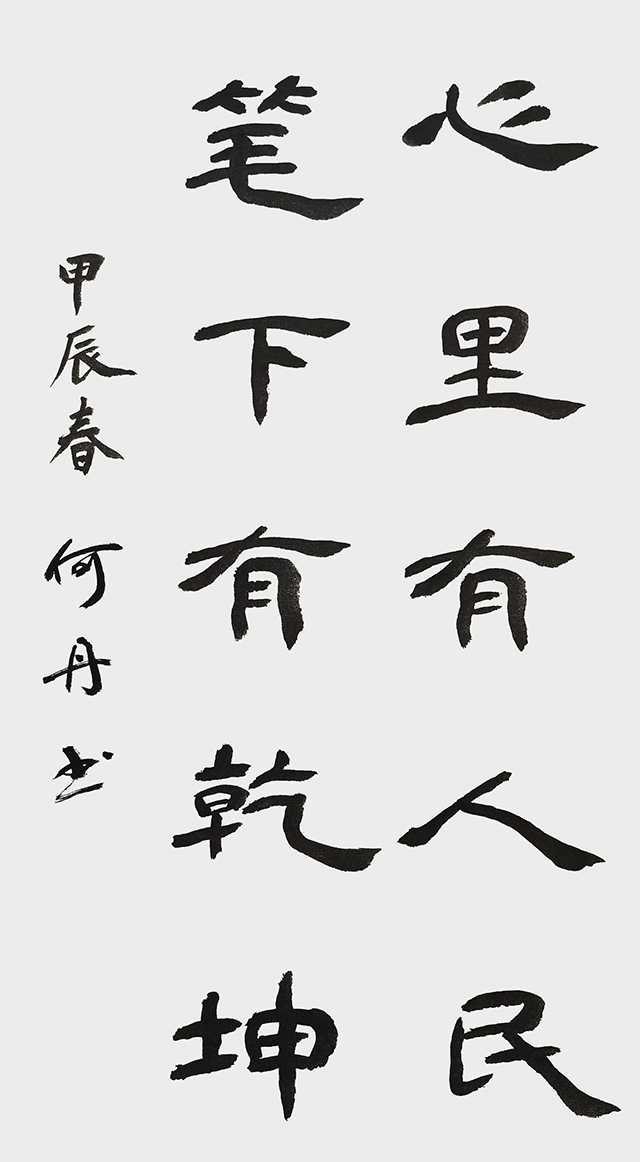 心里有人民
笔下有乾坤
甲辰春 何丹书